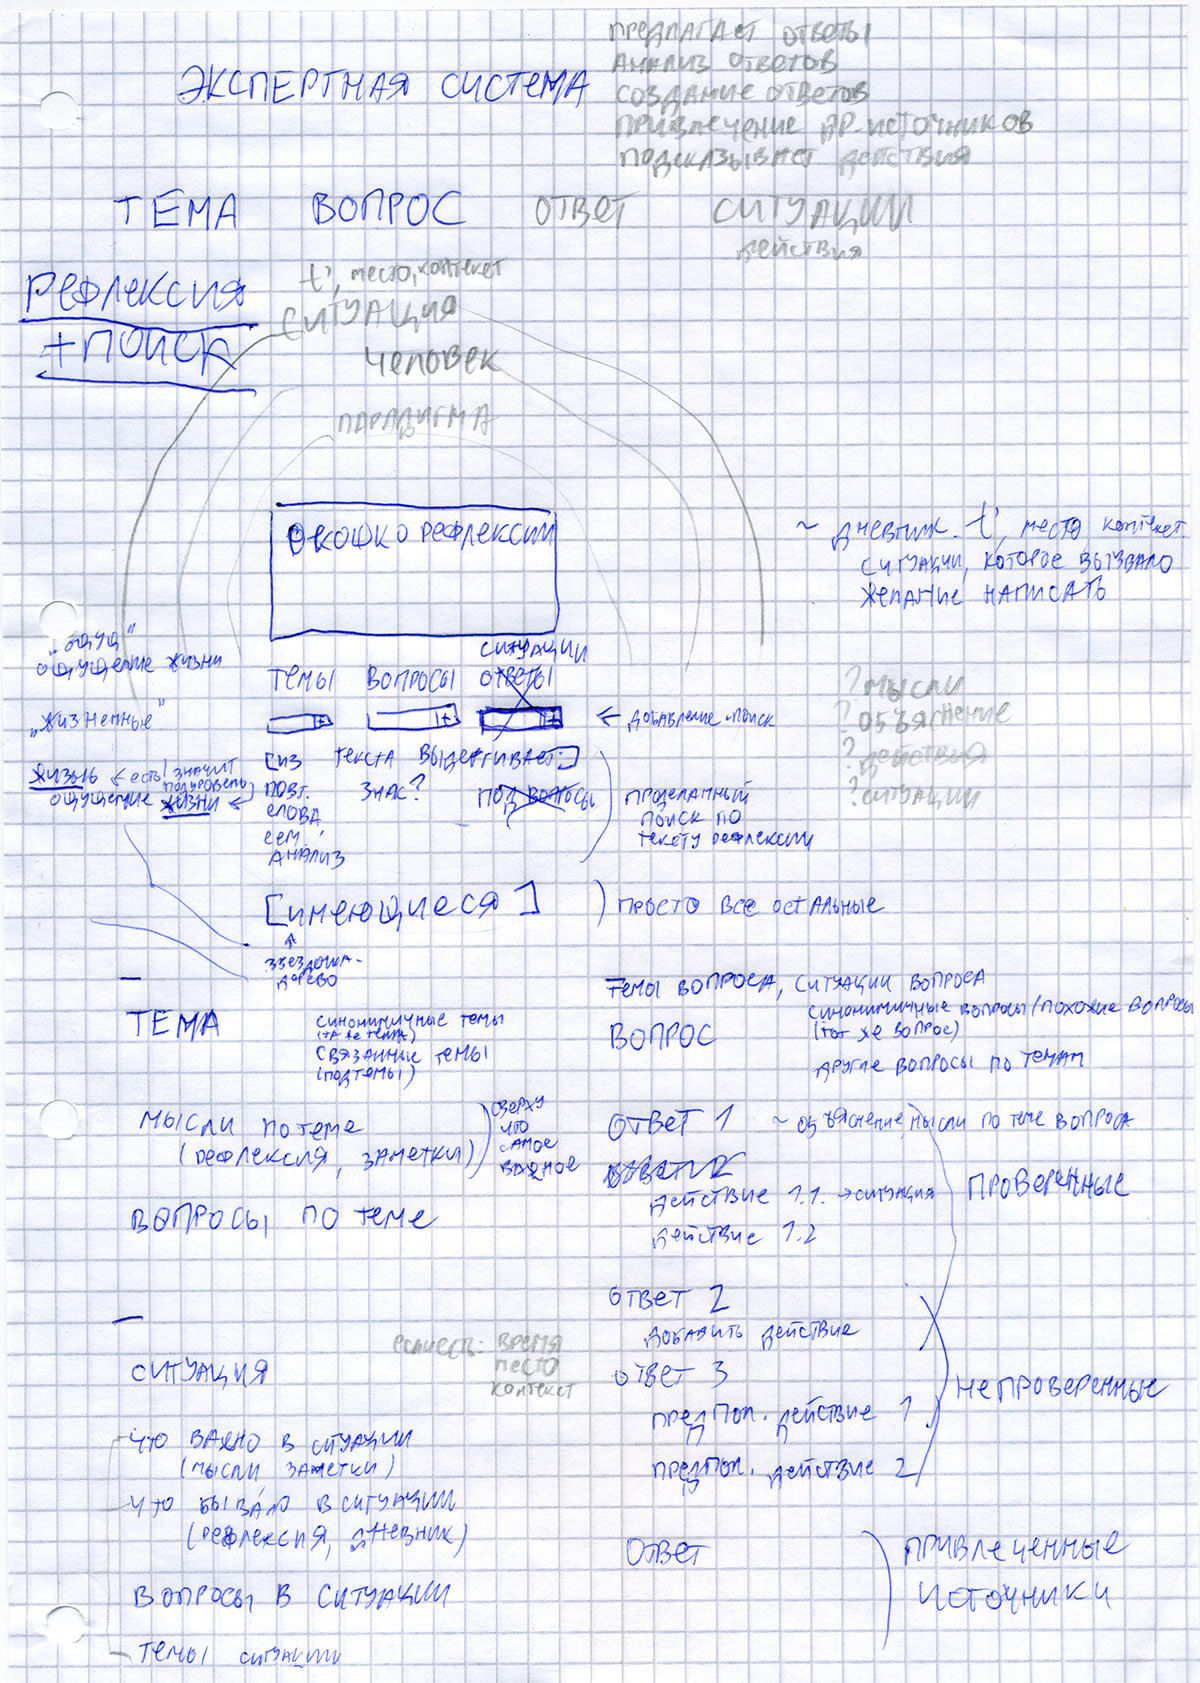 ПРЕДЛАГАЕТ ОТВЕТЫ
АНАЛИЗ ОТВЕТОВ
СОЗДАНИЕ ОТВЕТОВ
ПРИВЛЕЧЕНИЕ ДР. ИСТОЧНИКОВ
ПОДСКАЗЫВАЕТ ДЕЙСТВИЯ
ЭКСПЕРТНАЯ СИСТЕМА
ТЕМА ВОПРОС ОТВЕТ СИТУАЦИИ
ДЕЙСТВИЯ
РЕФЛЕКСИЯ
+ПОИСК
t', МЕСТО, КОНТЕКСТ
СИТУАЦИЯ
ЧЕЛОВЕК
ПАРАДИГМА
ОКОШКО РЕФЛЕКСИИ
~ ДНЕВНИК. t', МЕСТО КОНТЕКСТ.
СИТУАЦИИ, КОТОРОЕ ВЫЗВАЛО
ЖЕЛАНИЕ НАПИСАТЬ
"ОЩУЩ"
ОЩУЩЕНИЕ ЖИЗНИ
"ЖИЗНЕННЫЕ"
ЖИЗНЬ ← ЕСТЬ! ЗНАЧИТ
ПОДУРОВЕНЬ
ОЩУЩЕНИЕ ЖИЗНИ ←
СИТУАЦИИ
ТЕМЫ ВОПРОСЫ ОТВЕТЫ
+ + +
← ДОБАВЛЕНИЕ-ПОИСК
[ИЗ ТЕКСТА ВЫДЕРГИВАЕТ:]
ПОВТ. ЗНАК? ПОД ВОПРОСЫ
СЛОВА
СЕМ.
АНАЛИЗ
ПРОДЕЛАННЫЙ
ПОИСК ПО
ТЕКСТУ РЕФЛЕКСИИ
? МЫСЛИ
? ОБЪЯСНЕНИЕ
? ДЕЙСТВИЯ
? СИТУАЦИИ
[ИМЕЮЩИЕСЯ] ) ПРОСТО ВСЕ ОСТАЛЬНЫЕ
ЗВЕЗДОЧКА-
ДЕРЕВО
ТЕМА
СИНОНИМИЧНЫЕ ТЕМЫ
(ТА ЖЕ ТЕМА)
СВЯЗАННЫЕ ТЕМЫ
(ПОДТЕМЫ)
МЫСЛИ ПО ТЕМЕ
(РЕФЛЕКСИЯ, ЗАМЕТКИ)
СВЕРХУ
ЧТО
САМОЕ
ВАЖНОЕ
ВОПРОСЫ ПО ТЕМЕ
ТЕМЫ ВОПРОСА, СИТУАЦИИ ВОПРОСА
ВОПРОС
СИНОНИМИЧНЫЕ ВОПРОСЫ/ПОХОЖИЕ ВОПРОСЫ
(ТОТ ЖЕ ВОПРОС)
ДРУГИЕ ВОПРОСЫ ПО ТЕМАМ
ОТВЕТ 1 ~ ОБЪЯСНЕНИЕ, МЫСЛИ ПО ТЕМЕ ВОПРОСА
ДЕЙСТВИЕ 1.1. → СИТУАЦИЯ
ДЕЙСТВИЕ 1.2
ПРОВЕРЕННЫЕ
ОТВЕТ 2
ДОБАВИТЬ ДЕЙСТВИЕ
ОТВЕТ 3
ПРЕДПОЛ. ДЕЙСТВИЕ 1
ПРЕДПОЛ. ДЕЙСТВИЕ 2
НЕПРОВЕРЕННЫЕ
ОТВЕТ
ПРИВЛЕЧЕННЫЕ
ИСТОЧНИКИ
СИТУАЦИЯ
ЕСЛИ ЕСТЬ: ВРЕМЯ
МЕСТО
КОНТЕКСТ
ЧТО ВАЖНО В СИТУАЦИИ
(МЫСЛИ ЗАМЕТКИ)
ЧТО БЫВАЛО В СИТУАЦИИ
(РЕФЛЕКСИЯ, ДНЕВНИК)
ВОПРОСЫ В СИТУАЦИИ
ТЕМЫ СИТУАЦИИ